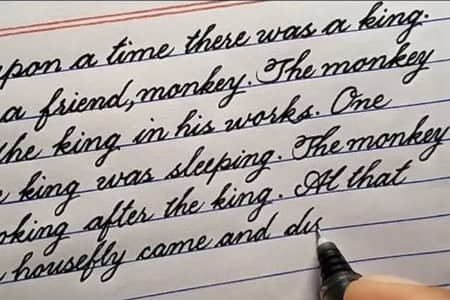 upon a time there was a king.
a friend, monkey. The monkey
the king in his works. One
king was sleeping. The monkey
oking after the king. At that
housefly came and dis